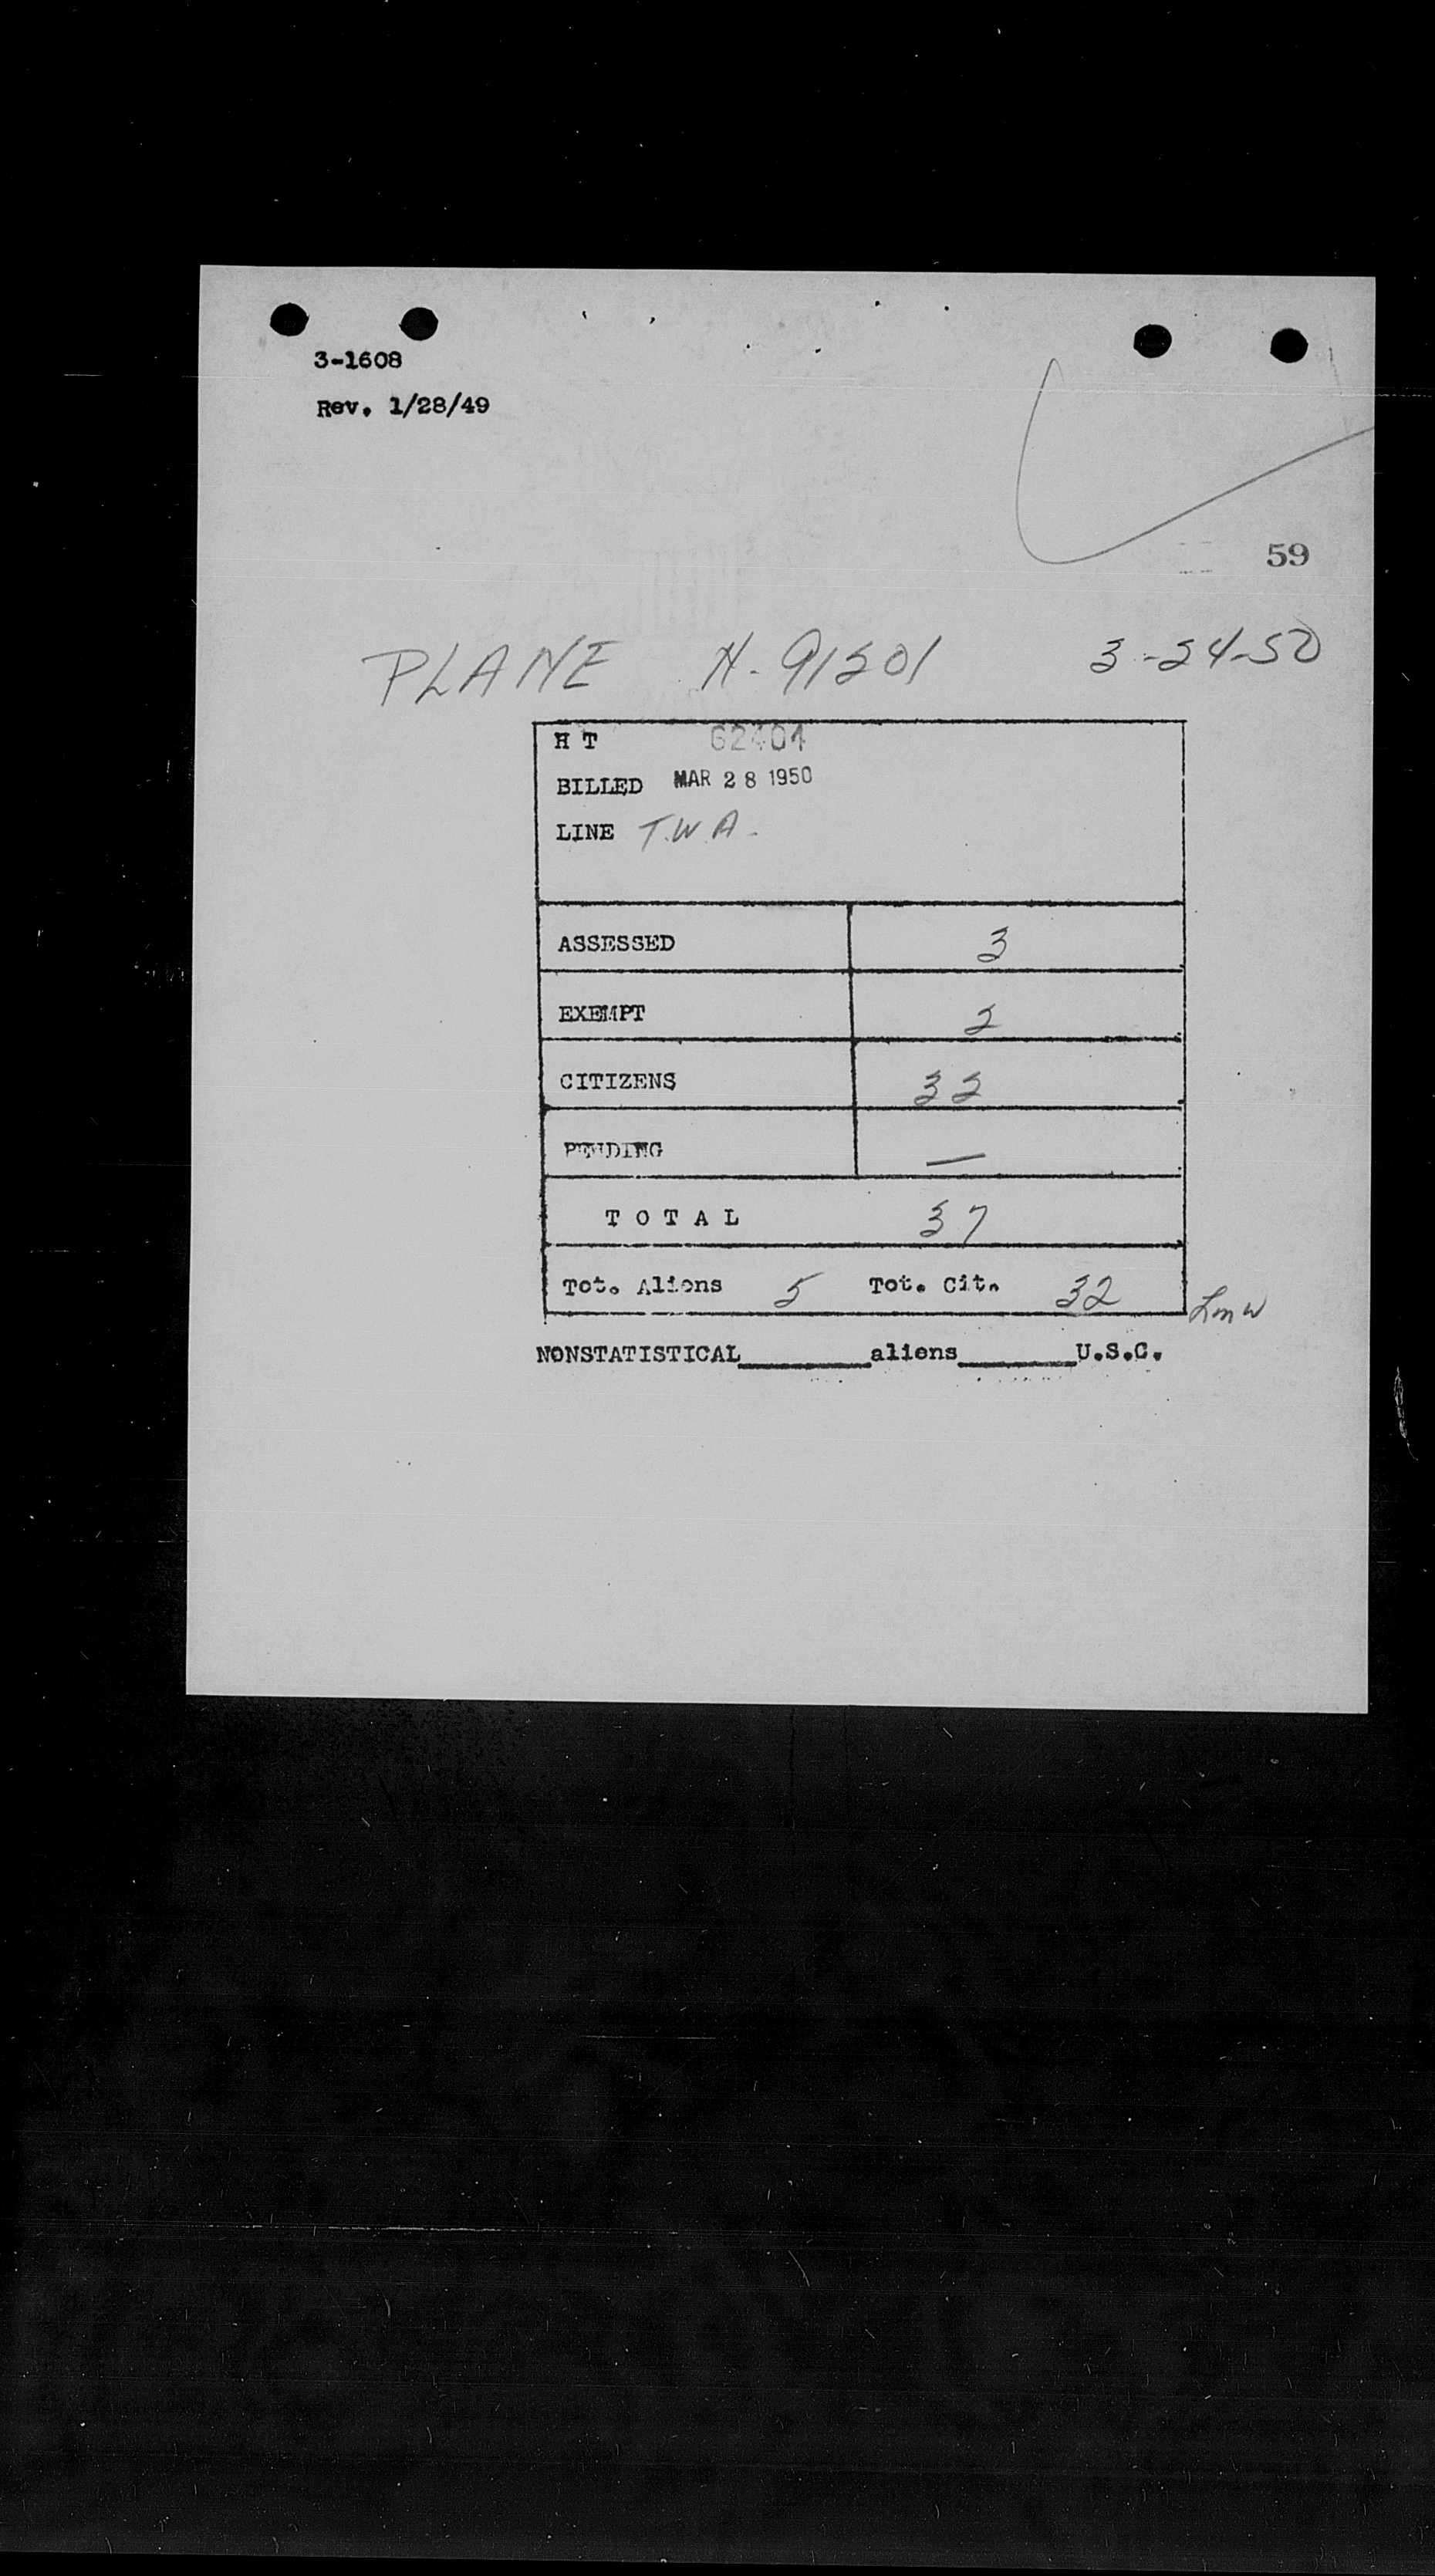 3-1608
Rev. 1/28/49
59
PLANE N-91201 3-24-50
H T 62404
BILLED MAR 28 1950
LINE T.W.A.
ASSESSED 3
EXEMPT 2
CITIZENS 32
PENDING —
TOTAL 37
Tot. Aliens 5 Tot. Cit. 32 Lmw
NONSTATISTICAL________aliens_______U.S.C.